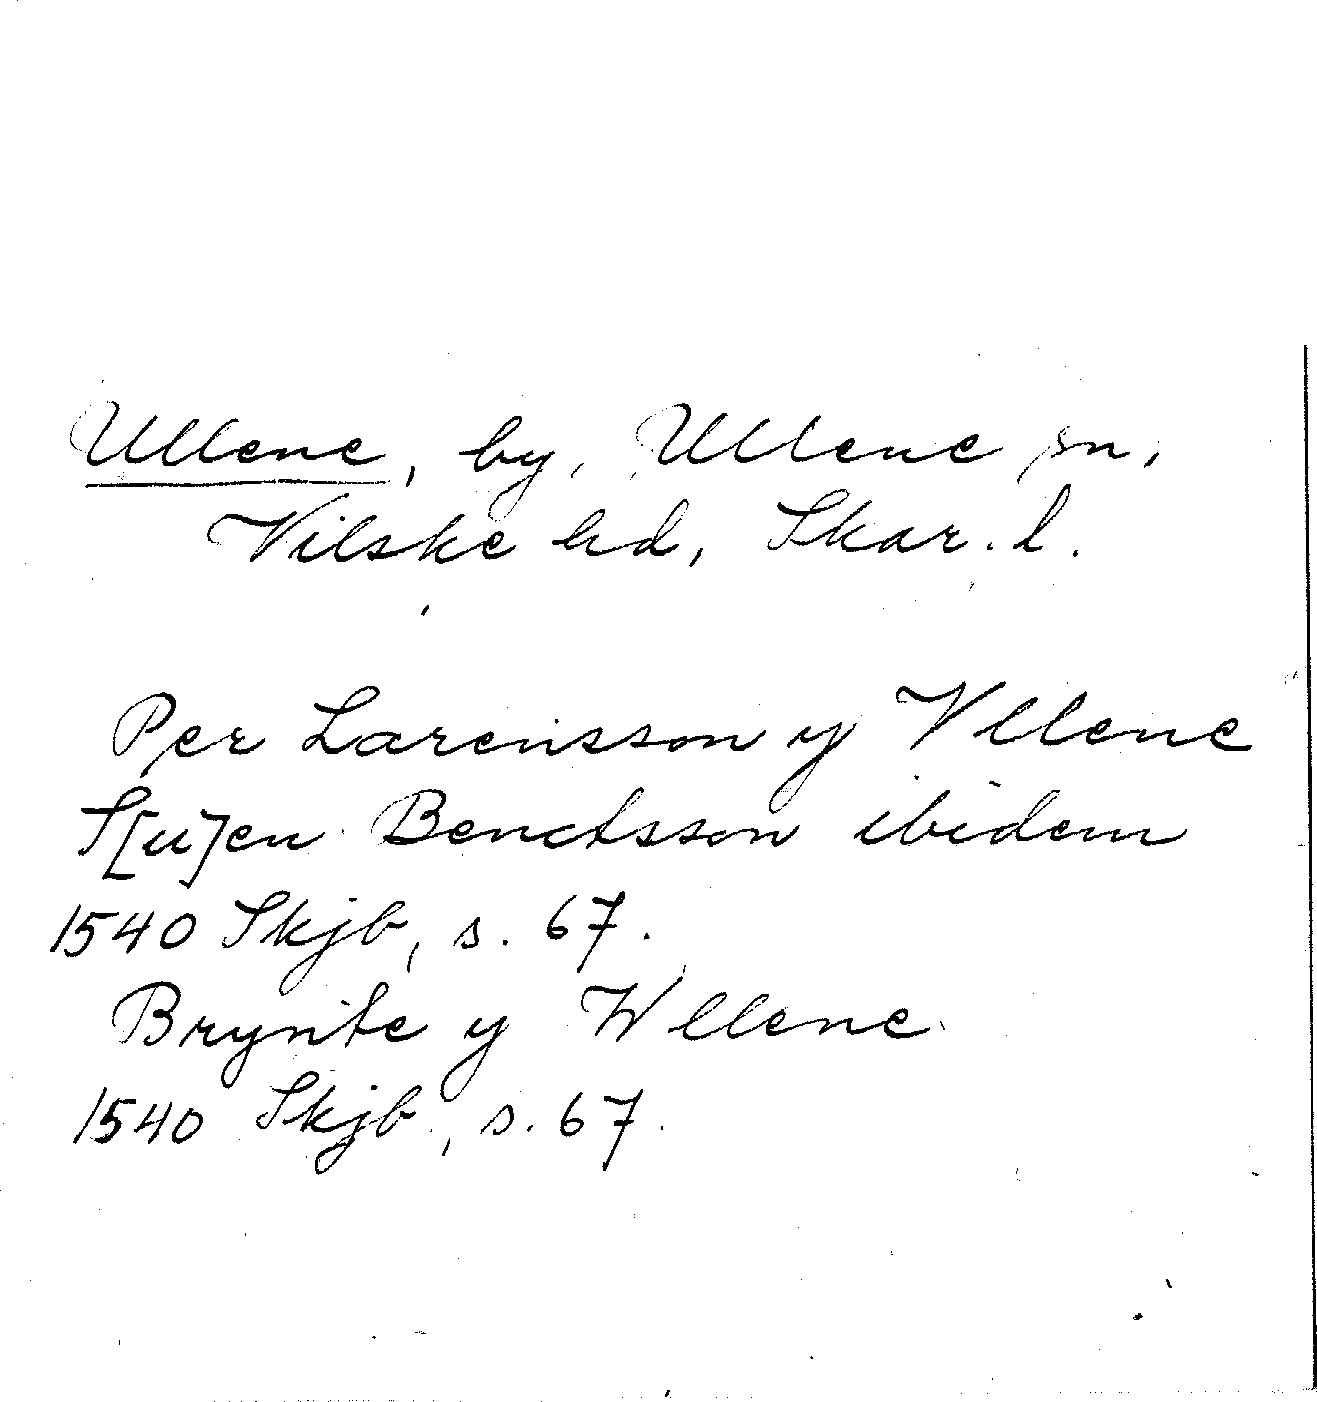 Ullene, by, Ullene sn,
Vilske hd, Skar. l.
Per Larensson y Vllene
S[u]en Benctsson ibidem
1540 Skjb, s. 67.
Brynte y Wllene
1540 Skjb, s. 67.